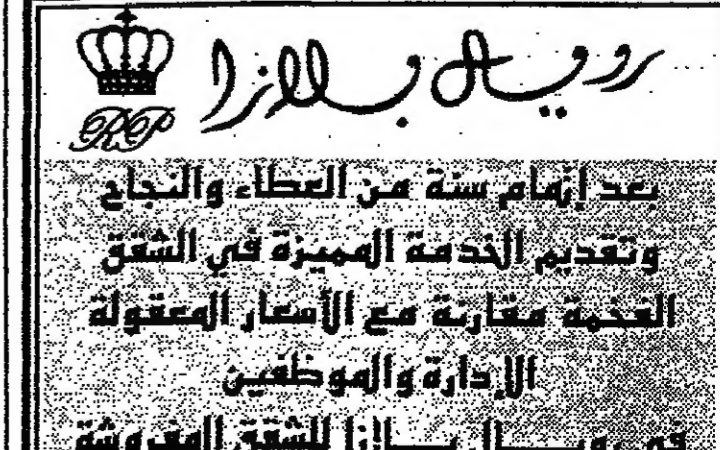 رويال بلازا
RP
بعد إتمام سنة من العطاء والنجاح
وتقديم الخدمة المميزة في الشقق
الفخمة مقارنة مع الأسعار المعقولة
الإدارة والموظفين
في رويـــال بـــلازا للشقق المفروشة